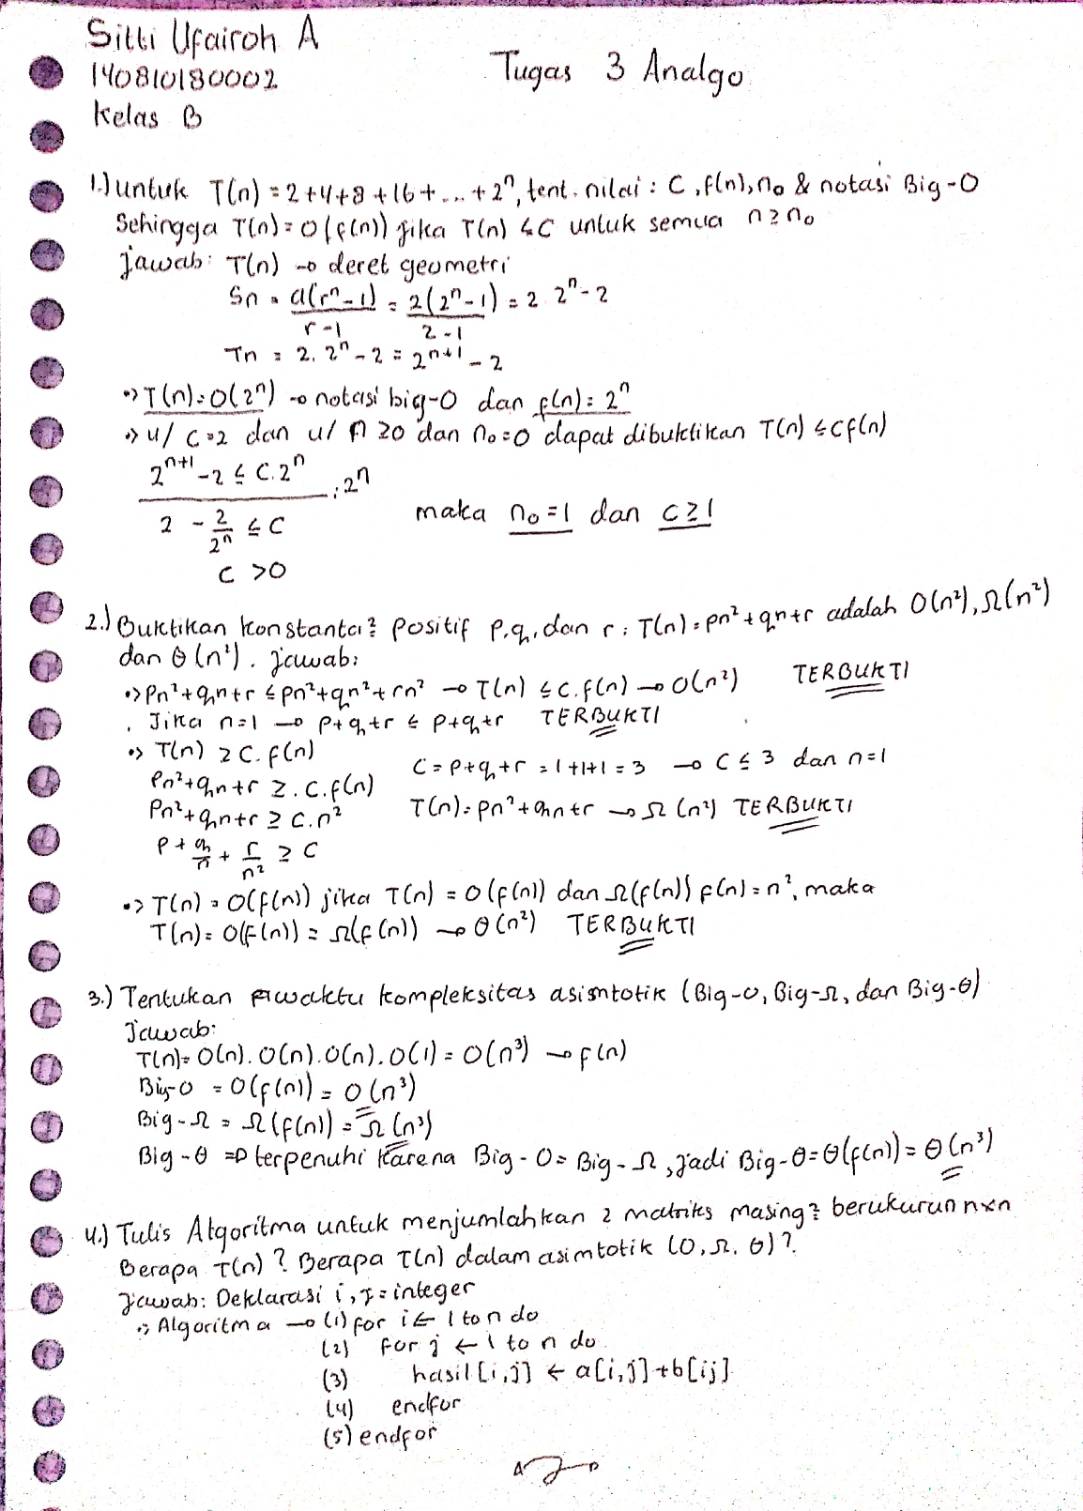 Sitti Ufairoh A
140810180002
Kelas B
Tugas 3 Analgo
1.) Untuk T(n) = 2+4+8+16+...+2ⁿ, tent. nilai : C, f(n), n₀ & notasi Big-O
Sehingga T(n) = O(f(n)) jika T(n) ≤ C untuk semua n ≥ n₀
Jawab: T(n) → deret geometri
Sn = a(rⁿ-1)/r-1 = 2(2ⁿ-1)/2-1 = 2 2ⁿ-2
Tn = 2. 2ⁿ-2 = 2ⁿ⁺¹-2
•> T(n) = O(2ⁿ) → notasi big-O dan f(n) = 2ⁿ
•> u/ c=2 dan u/ n ≥0 dan n₀=0 dapat dibuktikan T(n) ≤ Cf(n)
2ⁿ⁺¹-2 ≤ C.2ⁿ
: 2ⁿ
2 - 2/2ⁿ ≤ C
maka n₀=1 dan c≥1
C >0
2.) Buktikan konstanta² positif p,q, dan r : T(n) = pn²+qn+r adalah O(n²), Ω(n²)
dan Θ(n²). Jawab:
•> pn²+qn+r ≤ pn²+qn²+rn² → T(n) ≤ C.f(n) → O(n²) TERBUKTI
. Jika n=1 → p+q+r ≤ p+q+r TERBUKTI
•> T(n) ≥ C. f(n)
pn²+qn+r ≥. C.f(n)
C = p+q+r = 1+1+1 = 3 → C ≤ 3 dan n=1
pn²+qn+r ≥ C.n²
T(n) = pn²+qn+r → Ω (n²) TERBUKTI
p + q/n + r/n² ≥ C
•> T(n) = O(f(n)) jika T(n) = O(f(n)) dan Ω(f(n)) f(n)=n², maka
T(n) = O(f(n)) = Ω(f(n)) → Θ(n²) TERBUKTI
3.) Tentukan waktu kompleksitas asimtotik (Big-O, Big-Ω, dan Big-Θ)
Jawab:
T(n) = O(n). O(n). O(n). O(1) = O(n³) → f(n)
Big-O = O(f(n)) = O(n³)
Big-Ω = Ω(f(n)) = Ω(n³)
Big-Θ => terpenuhi karena Big-O = Big-Ω, jadi Big-Θ=Θ(f(n)) = Θ(n³)
4.) Tulis Algoritma untuk menjumlahkan 2 matriks masing² berukuran nxn
Berapa T(n) ? Berapa T(n) dalam asimtotik (O, Ω, Θ) ?
Jawab: Deklarasi i, j = integer
•> Algoritma → (1) for i ← 1 to n do
(2) for j ← 1 to n do
(3) hasil [i,j] ← a[i,j]+b[ij]
(4) endfor
(5) endfor